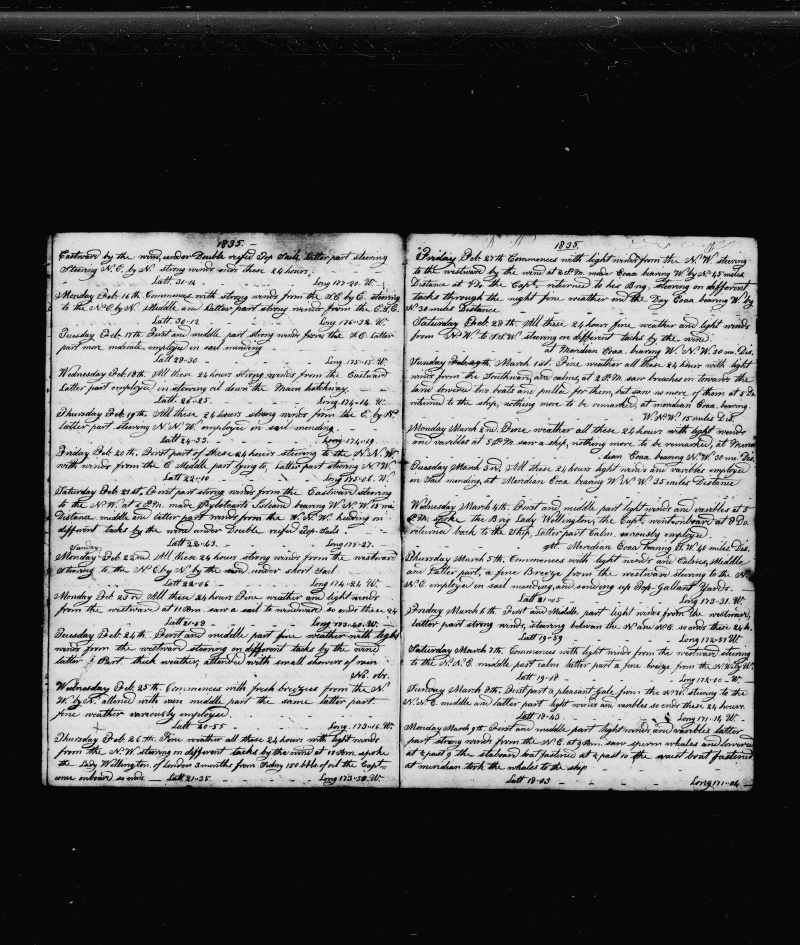 1835.
Eastward by the wind, under Double reefed Top Sails, latter part steering
Steering N.E. by N. strong winds ends these 24 hours.
Latt 31-14 Long 177-20 W.
Monday Feb. 16th Commences with strong winds from the E. by E. steering
to the N.E. by N. Middle and latter part strong winds from the E.N.E.
Latt 30-12 Long 176-32 W.
Tuesday Feb. 17th First and middle part strong winds from the E. latter
part more moderate, employed in sail mending
Latt 28-30 Long 175-15 W.
Wednesday Feb. 18th All these 24 hours strong winds from the Eastward
Latter part employed in stowing oil down the Main hatchway.
Latt. 26-25. Long. 174-14. W.
Thursday Feb. 19th All these 24 hours strong winds from the E. by N.
latter part steering N.N.W. employed in sail mending.
Latt 24-33 Long 174-19
Friday Feb. 20th First part of these 24 hours steering to the N.N.W
with winds from the E. Middle part lying to, Latter part steering N.W.
Latt 22-10 Long 175-06 W.
Saturday Feb. 21st First part strong winds from the Eastward steering
to the N.W. at 6 P.M. made Island bearing W.N.W. 15 mi.
Distance middle and latter part winds from the W.N.W. heading on
different tacks by the wind under Double reefed Top-Sails.
Latt 22-43. Long 175-27.
Sunday
Monday Feb 22nd All these 24 hours strong winds from the westward
steering to the N.E. by N by the wind under short Sail
Latt 22-06 Long 174-24 W.
Monday Feb 23rd All these 24 hours Fine weather and light winds
from the westward at 11 A.m. saw a sail to windward so ends these 24
Latt 21-59 Long 173-40 W.
Tuesday Feb. 24th First and middle part fine weather with light
winds from the westward steering on different tacks by the wind
latter Part thick weather, attended with small showers of rain
No obs.
Wednesday Feb. 25th Commences with fresh breezes from the N.
W. by N. attened with rain middle part the same latter part
fine weather variously employed.
Latt 20-55 Long. 173-16. W.
Thursday Feb. 26th Fine weather all these 24 hours with light winds
from the N.W. steering on different tacks by the wind at 10 A.m. spoke
the Lady Wellington of London 3 months from Sidney 150 bbls of oil the Capt-
ame onboard so ends Latt 21-35 Long 173-50 W.
1835.
Friday Feb. 27th Commences with light winds from the N.W. steering
to the westward by the wind at 2 P.M. made Eoaa bearing W by N 45 miles
Distance at the Capt. returned to his Brig, steering on different
tacks through the night fine weather end the Day Eoaa bearing W. by
N. 30 miles Distance
Saturday Feb. 28th All these 24 hour fine weather and light winds
from N.W. to S.S.W. steering on different tacks by the wind.
at Meridean Eoaa. bearing W.N.W. 30 mi. Dis.
Sunday March 1st. Fine weather all these 24 hour with light
winds from the Southward and calms, at 2 P.M. saw breaches in towards the
land lowered two boats and pulled for them, but saw no more of them at 5
returned to the ship, nothing more to be remarked, at meridian Eoaa bearing.
W.N.W. 15 miles Dis
Monday March 2nd Fine weather all these 24 hour with light winds
and varibles at 5 P.M. saw a ship, nothing more to be remarked, at Meri
dian Eoaa bearing N.W. 30 mi. Dis.
Tuesday March 3rd. All these 24 hours light winds and varibles employed
in Sail mending, at Meridian Eoaa bearing W.N.W. 35 miles Distance
Wednesday March 4th. First and middle part light winds and varibles at 5
P.M. spoke the Brig Lady Wellington, the Capt. went onboard at 8
returned back to the Ship, Latter part Calm. variously employed
att. Meridian Eoaa bearing S.W. 40 miles Dis.
Thursday March 5th. Commences with light winds and Calms, Middle
and Latter part, a fine Breeze from the westward steering to the N.
N.E. employed in sail mending, and sending up Top-Gallant Yards.
Latt 21-05 Long 173-31. W.
Friday March 6th. First and Middle part light winds from the westward,
latter part strong winds, steering between the N. and N.E. so ends these 24 h.
Latt 19-59 Long 172-57 W
Saturday March 7th. Commences with light winds from the westward steering
to the N.N.E. middle part calm latter part a fine breeze from the N.W. by W.
Latt. 19-18 Long 172-10 W.
Sunday March 8th. First part a pleasant Gale from the N.W. steering to the
N.N.E. middle and latter part light winds and varibles so ends these 24 hours.
Latt 18-43 Long 171-14 W.
Monday March 9th. First and middle part light winds and varibles latter
part strong winds from the N.E. at 9 A.m. saw sperm whales and lowered
at 2 past 9 the starboard boat fastened at 2 past 10 the waist boat fastened
at meridian took the whales to the ship
Latt 18-03 Long 171-04